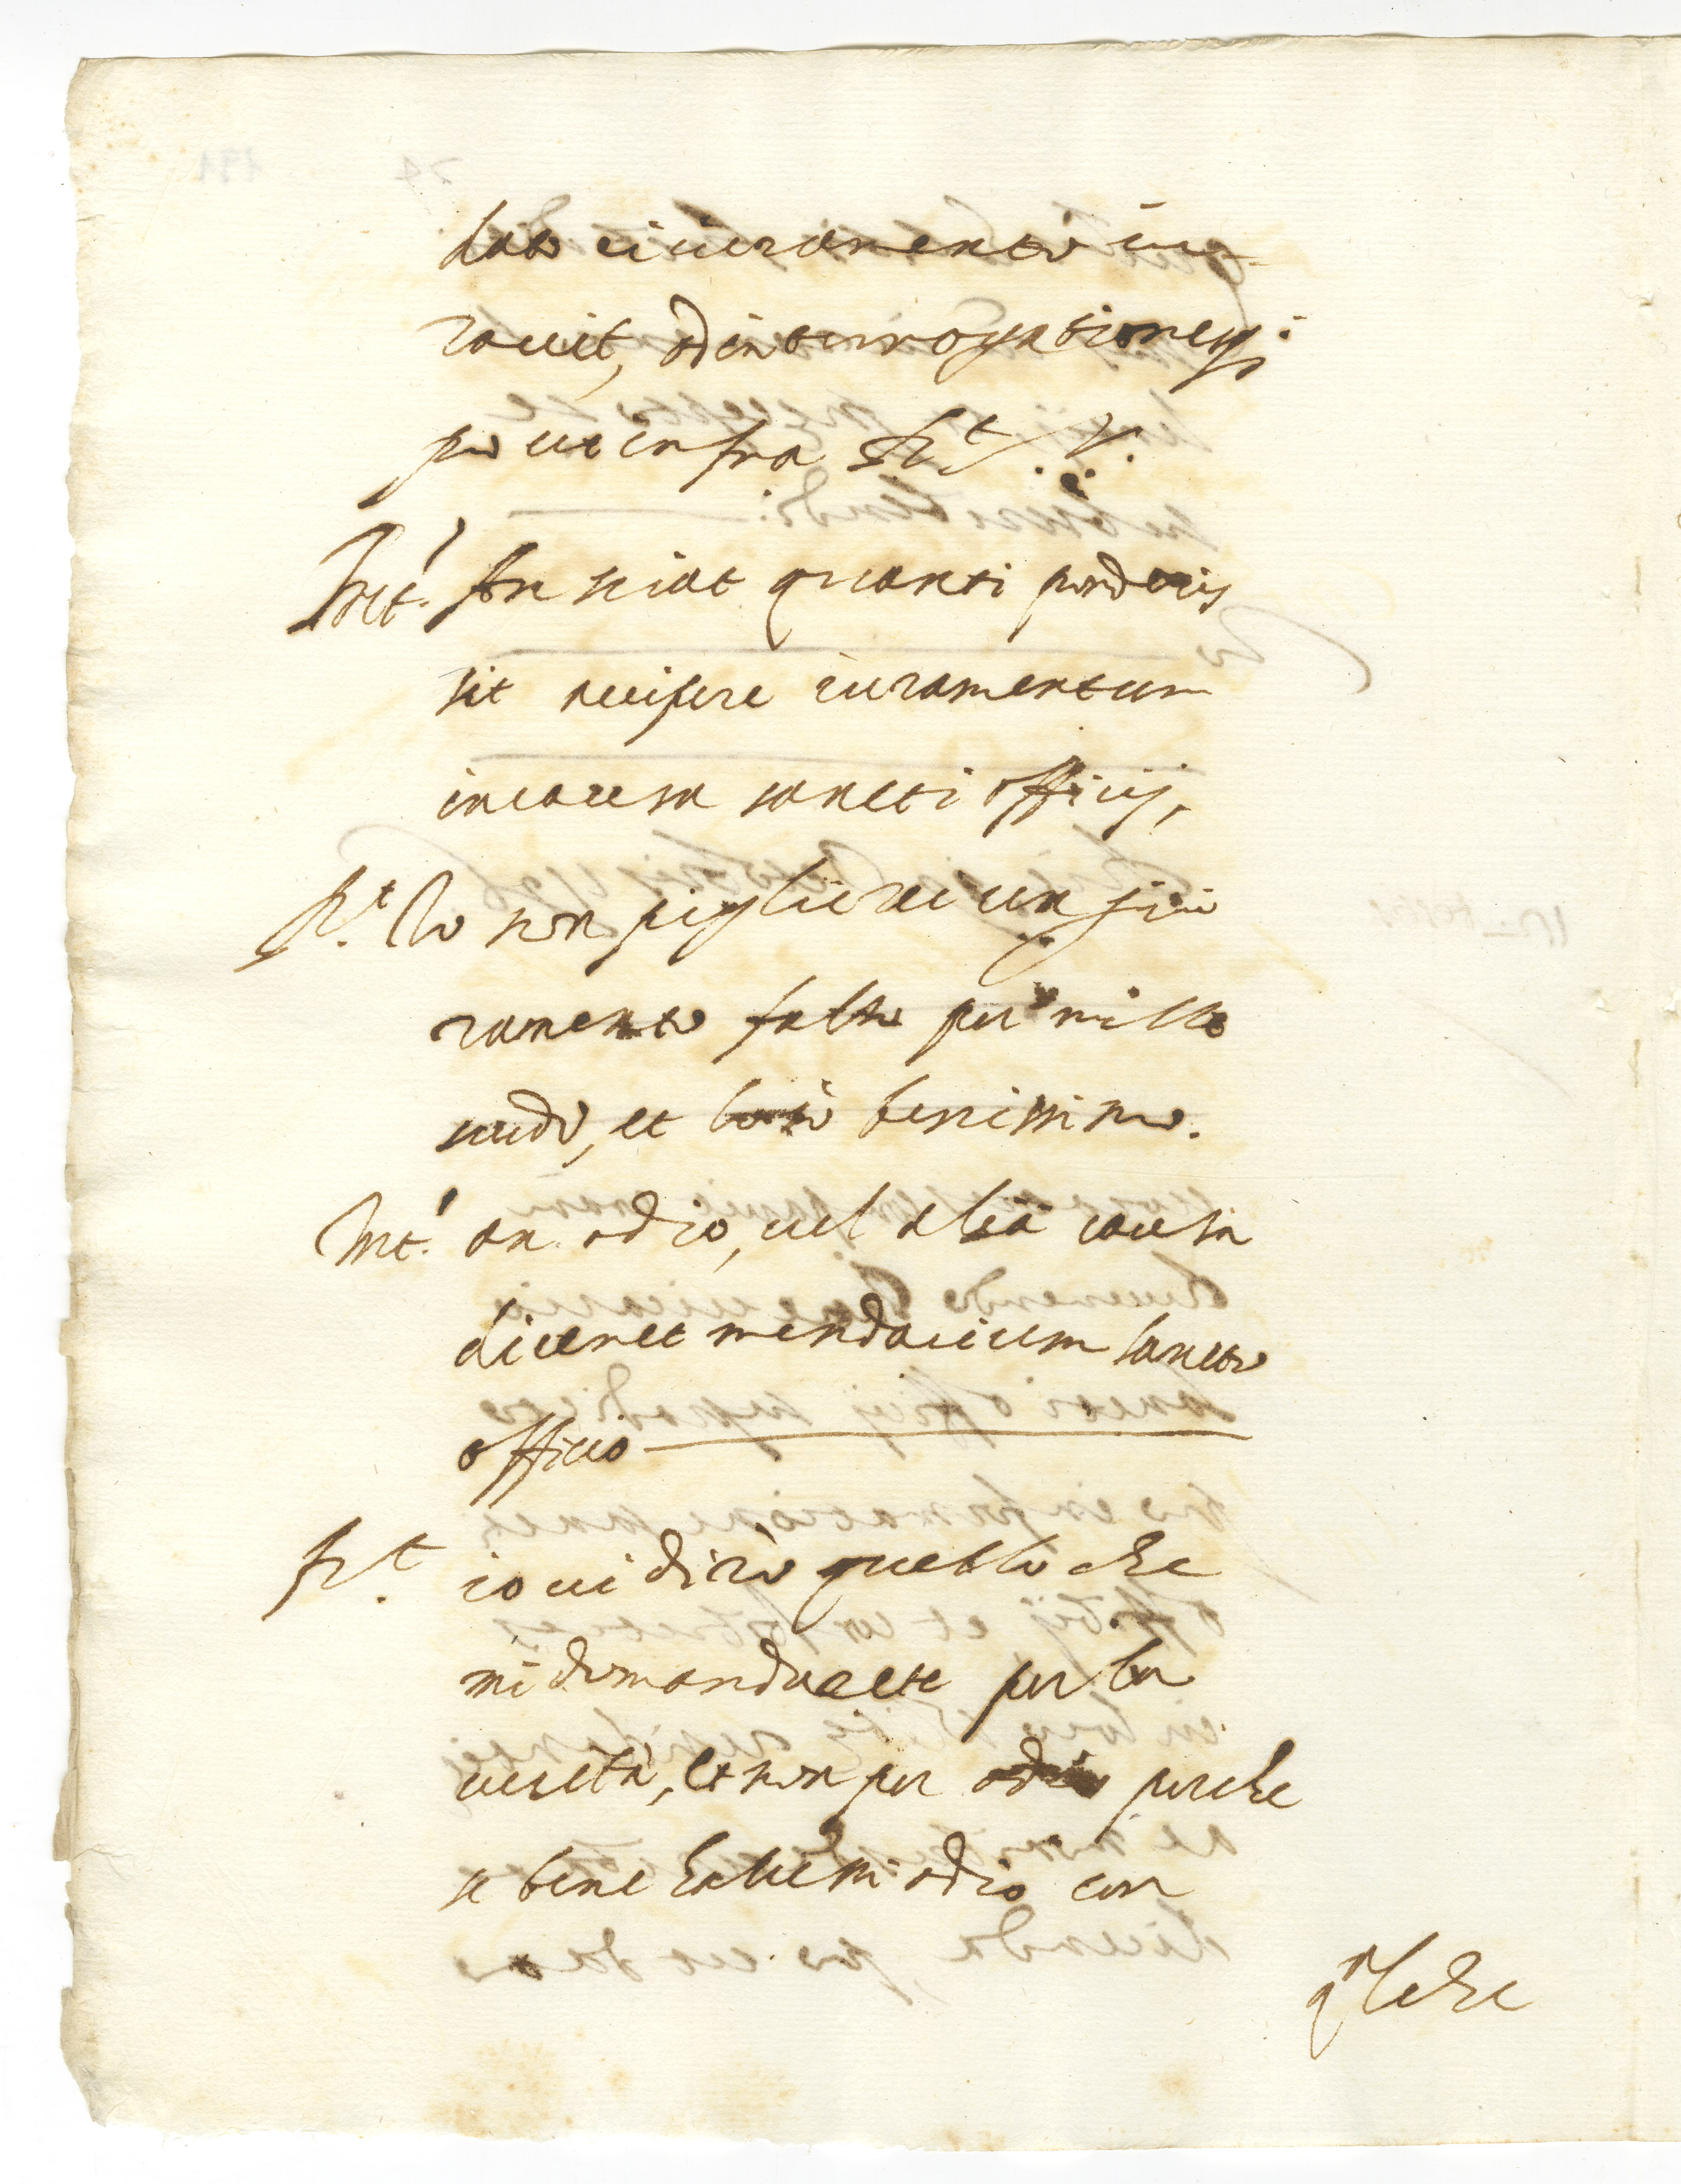 dato ei iuramento iu-
rauit, ad interrogationes,
pro ut infra R.t V.
Int.' An sciat quanti ponderis
sit accipere iuramentum
in causa sancti officij,
R.t Io non pigliarei un giu
ramento falso per mille
scudi, et lo sò benissimo.
Int.' an odio, uel alia causa
diceret mendacium sancto
officio
R.t io ui dirò quello che
mi domandarete per la
uerità, et non per odio perche
se bene hauessi odio con
q.lche